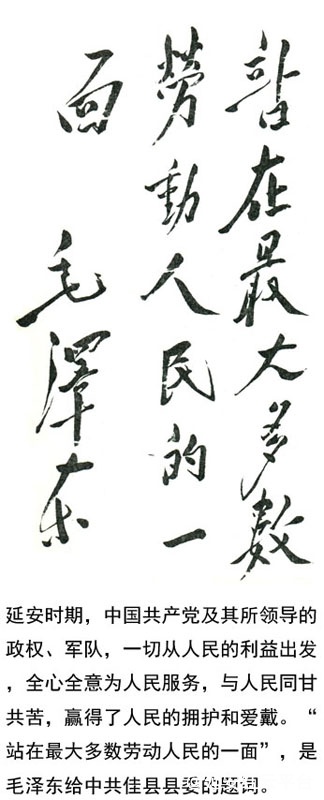 站在最大多數
勞動人民的一
面
毛澤东
延安时期，中国共产党及其所领导的
政权、军队，一切从人民的利益出发
，全心全意为人民服务，与人民同甘
共苦，赢得了人民的拥护和爱戴。“
站在最大多数劳动人民的一面”，是
毛泽东给中共佳县县委的题词。